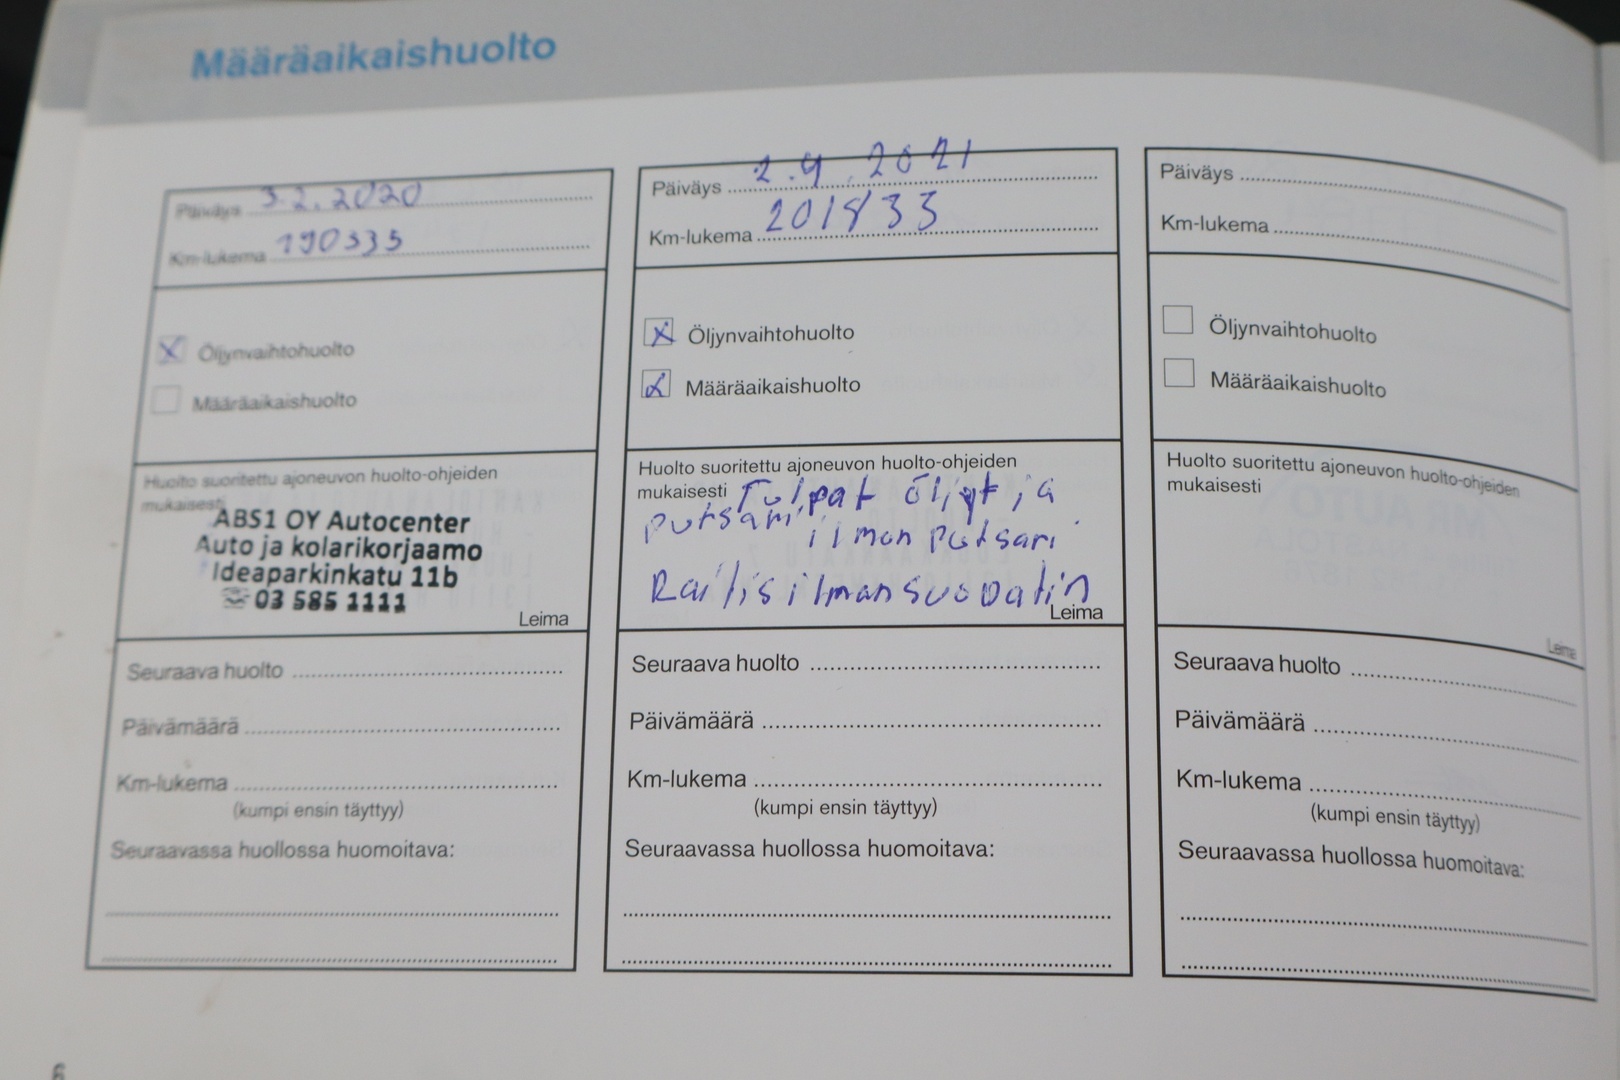 Määräaikaishuolto
Päiväys 3.2.2020
Km-lukema 190335
Öljynvaihtohuolto
Määräaikaishuolto
Huolto suoritettu ajoneuvon huolto-ohjeiden
mukaisesti
ABS1 OY Autocenter
Auto ja kolarikorjaamo
Ideaparkinkatu 11b
☎ 03 585 1111
Leima
Seuraava huolto
Päivämäärä
Km-lukema
(kumpi ensin täyttyy)
Seuraavassa huollossa huomoitava:
Päiväys 2.9.2021
Km-lukema 201833
Öljynvaihtohuolto
Määräaikaishuolto
Huolto suoritettu ajoneuvon huolto-ohjeiden
mukaisesti Tulpat öljyt ja
putsari, ilman putsari
Raitisilmansuodatin
Leima
Seuraava huolto
Päivämäärä
Km-lukema
(kumpi ensin täyttyy)
Seuraavassa huollossa huomoitava:
Päiväys
Km-lukema
Öljynvaihtohuolto
Määräaikaishuolto
Huolto suoritettu ajoneuvon huolto-ohjeiden
mukaisesti
Leima
Seuraava huolto
Päivämäärä
Km-lukema
(kumpi ensin täyttyy)
Seuraavassa huollossa huomoitava:
6